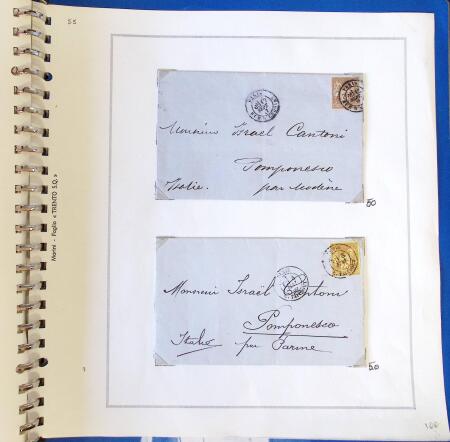 55
Marini - Foglio « TRENTO S.Q. »
PARIS
Monsieur Israel Cantoni
Pomponesco
Italie. par Modène
50
Monsieur Israël Cantoni
Pomponesco
Italie par Parme
50
100